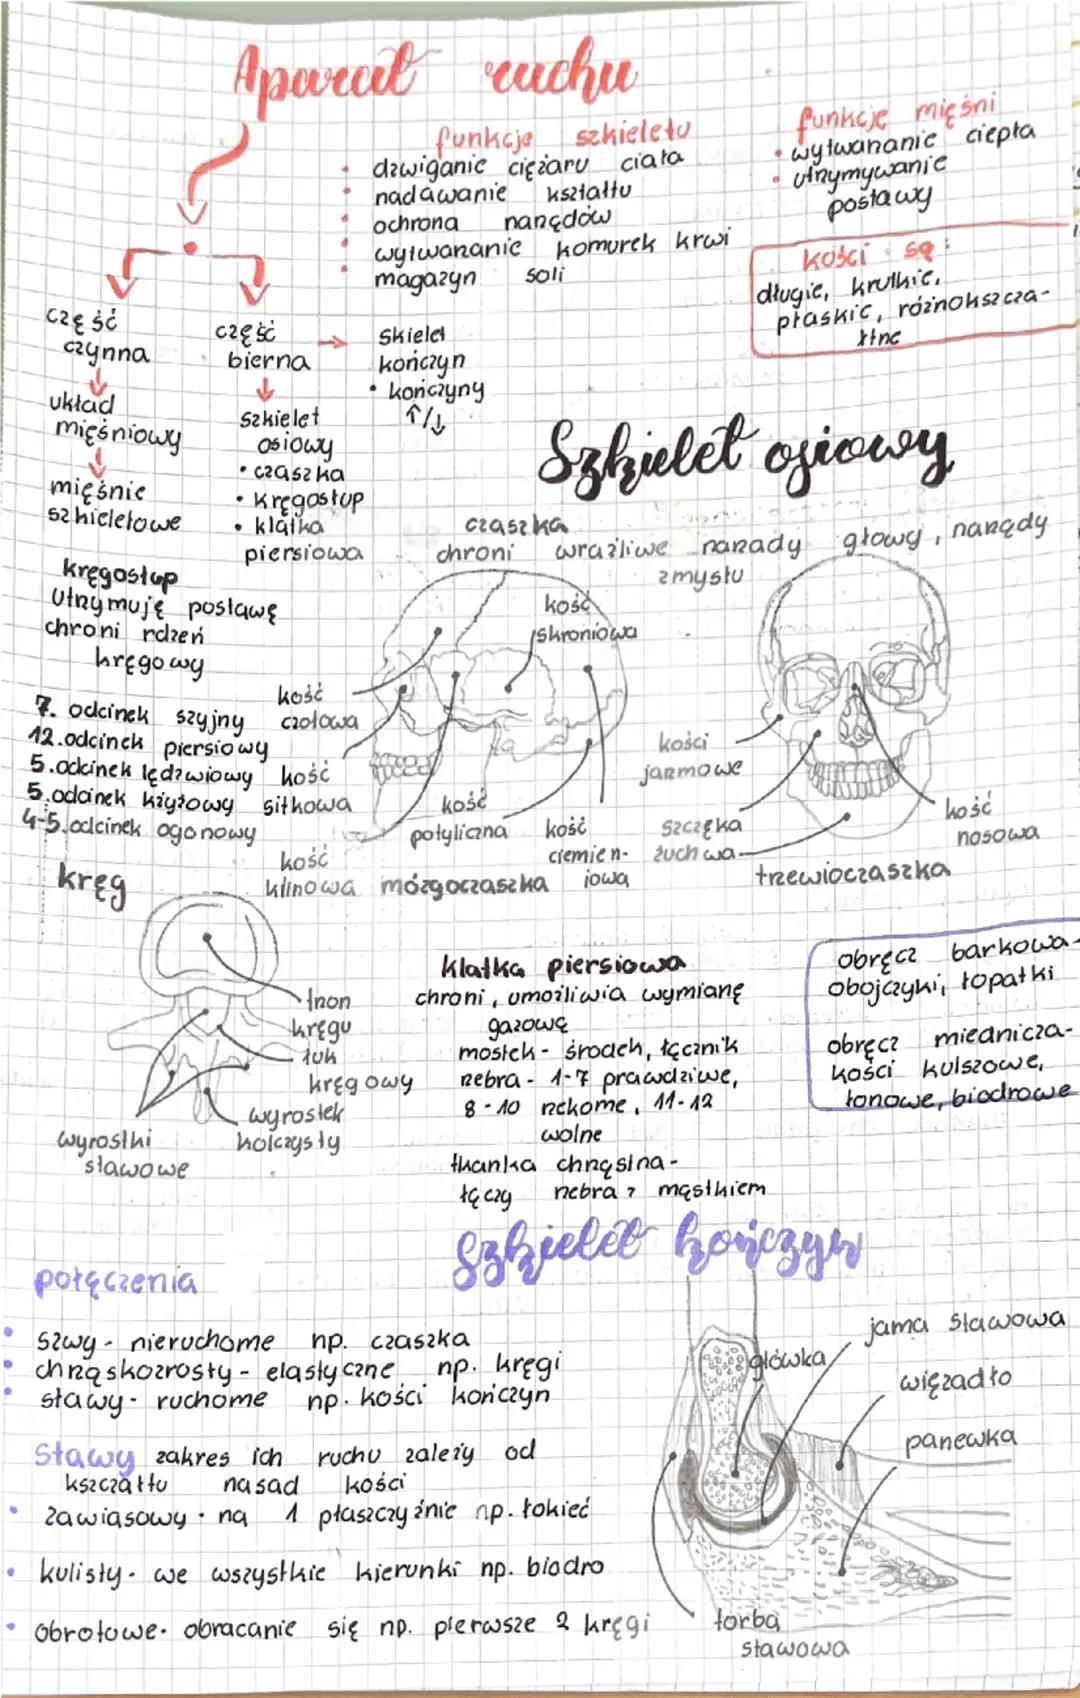 Aparat ruchu
funkcje szkieletu
• dzwiganie ciężaru ciała
• nadawanie kształtu
• ochrona narządów
• wytwarzanie komurek krwi
• magazyn soli
funkcje mięśni
• wytwarzanie ciepła
• utrzymywanie
postawy
kości są:
długie, krutkie,
płaskie, różnokszcza-
łtne
część
czynna
układ
mięśniowy
mięśnie
szkieletowe
część
bierna
szkielet
osiowy
• czaszka
• kręgosłup
• klatka
piersiowa
skielet
kończyn
• kończyny
↑/↓
Szkielet osiowy
czaszka
chroni wrażliwe narzady głowy, narządy
zmysłu
kręgosłup
Utrzymuję postawę
chroni rdzeń
kręgowy
7. odcinek szyjny
12. odcinek piersiowy
5. odcinek lędzwiowy
5. odcinek krzyżowy
4-5. odcinek ogonowy
kość
skroniowa
kość
czołowa
kość
sitkowa
kość
klinowa
kość
potyliczna
kość
ciemien-
iowa
mózgoczaszka
kości
jarzmowe
szczęka
żuchwa
kość
nosowa
trzewioczaszka
kręg
trzon
kręgu
łuk
kręgowy
wyrostek
kolczysty
wyrostki
stawowe
klatka piersiowa
chroni, umożiliwia wymianę
gazowę
mostek - środek, łącznik
żebra - 1-7 prawdziwe,
8-10 rzekome, 11-12
wolne
tkanka chrzęstna -
łączy żebra z mąstkiem
obręcz barkowa-
obojczyki, łopatki
obręcz miednicza-
kości kulszowe,
łonowe, biodrowe
Szkielet kończyn
połączenia
• szwy - nieruchome np. czaszka
• chrząskozrosty - elastyczne np. kręgi
• stawy - ruchome np. kości kończyn
Stawy zakres ich ruchu zależy od
kszczałtu nasad kości
• zawiasowy - na 1 płaszczyźnie np. łokieć
• kulisty - we wszystkie kierunki np. biodro
• obrotowe - obracanie się np. pierwsze 2 kręgi
główka
jama stawowa
więzadło
panewka
torba
stawowa